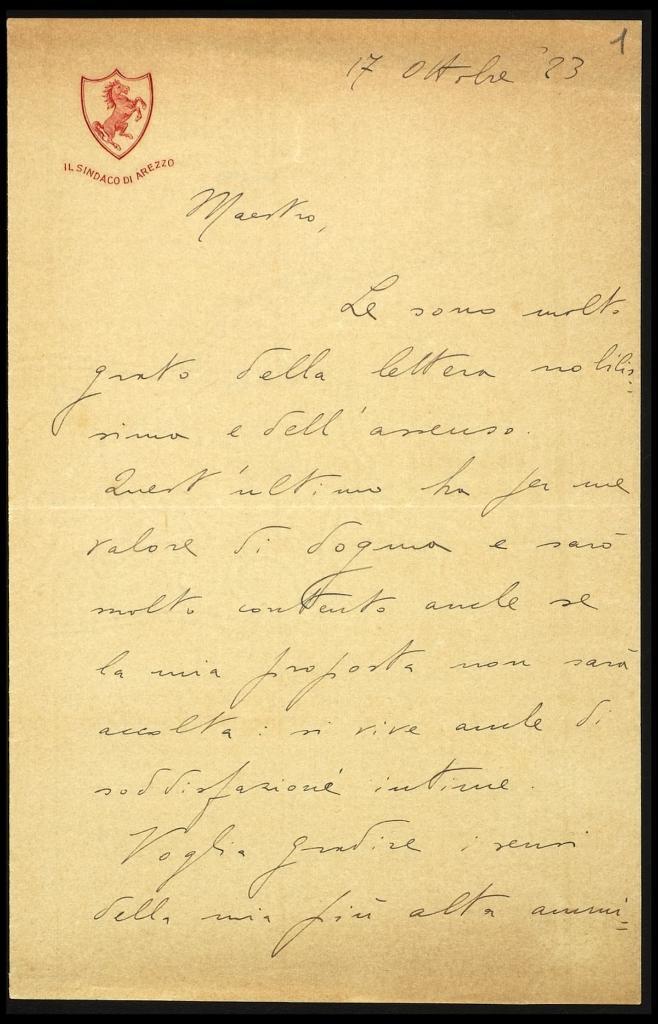 1
17 Ottobre '23
IL SINDACO DI AREZZO
Maestro,
Le sono molto
grato della lettera nobilis=
sima e dell'assenso.
Quest'ultimo ha per me
valore di dogma e sarò
molto contento anche se
la mia proposta non sarà
accolta: si vive anche di
soddisfazioni intime.
Voglia gradire i sensi
della mia più alta ammi=